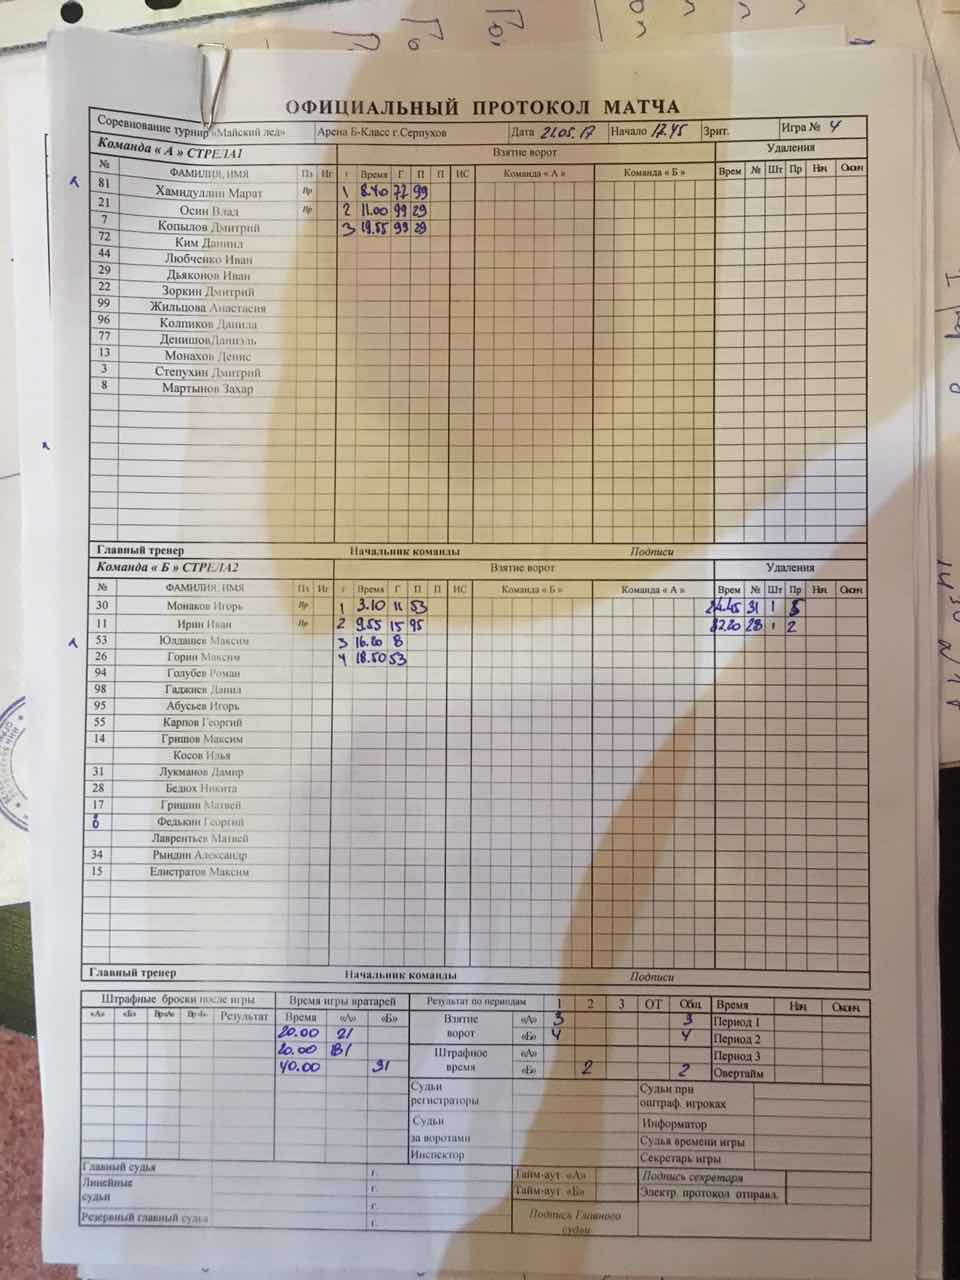 ОФИЦИАЛЬНЫЙ ПРОТОКОЛ МАТЧА
Соревнование турнир «Майский лед» Арена Б-Класс г.Серпухов Дата 21.05.17 Начало 17.45 Зрит. Игра № 4
Команда « А » СТРЕЛА1 Взятие ворот Удаления
№ ФАМИЛИЯ, ИМЯ Пз Иг г Время Г П П ИС Команда « А » Команда « Б » Врем № Шт Пр Нач Окон
81 Хамидуллин Марат Вр 1 8.40 77 99
21 Осин Влад Вр 2 11.00 99 29
7 Копылов Дмитрий 3 19.55 99 29
72 Ким Данинд
44 Любченко Иван
29 Дьяконов Иван
22 Зоркин Дмитрий
99 Жильцова Анастасия
96 Колпиков Данила
77 ДенишовДаниэль
13 Монахов Денис
3 Степухин Дмитрий
8 Мартынов Захар
Главный тренер Начальник команды Подписи
Команда « Б » СТРЕЛА2 Взятие ворот Удаления
№ ФАМИЛИЯ, ИМЯ Пз Иг г Время Г П П ИС Команда « Б » Команда « А » Врем № Шт Пр Нач Окон
30 Монаков Игорь Вр 1 3.10 11 53 24.45 31 1 5
11 Ирин Иван Вр 2 9.55 15 95 32.20 28 1 2
53 Юлдашев Максим 3 16.20 8
26 Горин Максим 4 18.50 53
94 Голубев Роман
98 Гаджиев Данил
95 Абусьев Игорь
55 Карпов Георгий
14 Гришов Максим
Косов Илья
31 Лукманов Дамир
28 Бедюх Никита
17 Гришин Матвей
8 Федькин Георгий
Лаврентьев Матвей
34 Рындин Александр
15 Елистратов Максим
Главный тренер Начальник команды Подписи
Штрафные броски после игры Время игры вратарей Результат по периодам 1 2 3 ОТ Общ Время Нач. Оконч.
«А» «Б» Вр«А» Вр«Б» Результат Время «А» «Б» Взятие ворот «А» 3 3 Период 1
20.00 21 «Б» 4 4 Период 2
20.00 81 Штрафное время «А» Период 3
40.00 31 «Б» 2 2 Овертайм
Судьи регистраторы Судьи при оштраф. игроках
Судьи за воротами Информатор
Судья времени игры
Инспектор Секретарь игры
Главный судья г. Тайм-аут «А» Подпись секретаря
Линейные судьи г. Тайм-аут «Б» Электр. протокол отправл.
г. Подпись Главного судьи
Резервный главный судья г.